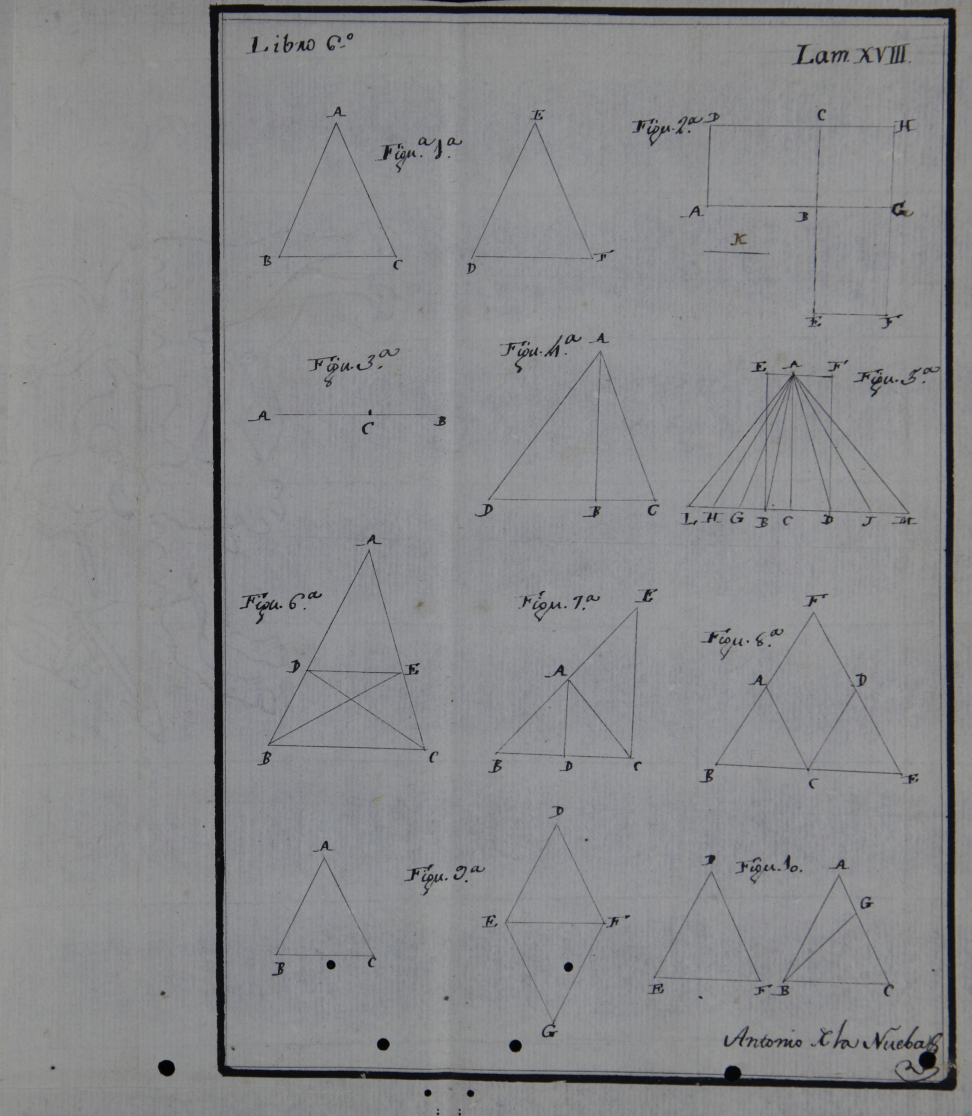 Libro 6.º
Lam XVIII.
A
Figu.ª 1.ª
B C
E
D F
Figu. 2.ª
D C H
A B G
K
E F
Figu. 3.ª
A C B
Figu. 4.ª
A
D B C
E A F
Figu. 5.ª
L H G B C D J M
Figu. 6.ª
A
D E
B C
Figu. 7.ª
E
A
B D C
Figu. 8.ª
F
A D
B C E
Figu. 9.ª
A
B C
D
E F
G
Figu. 10.
D
E F
A
G
B C
Antonio